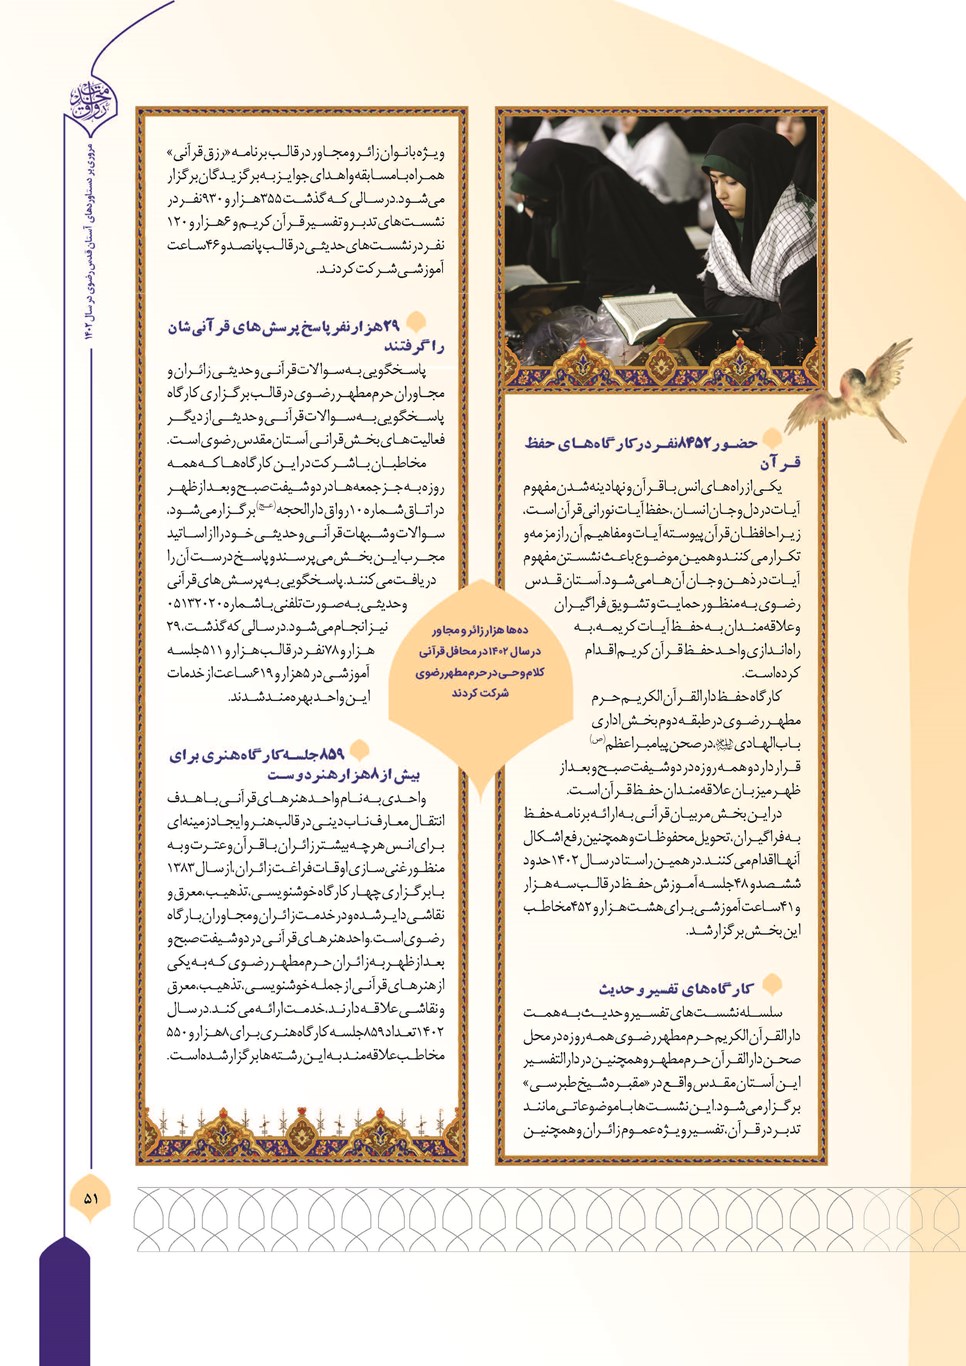 مروری بر دستاوردهای آستان قدس رضوی در سال ۱۴۰۲
حضور ۸۴۵۲ نفر در کارگاه‌های حفظ
قرآن
یکی از راه‌های انس با قرآن و نهادینه شدن مفهوم
آیات در دل و جان انسان، حفظ آیات نورانی قرآن است،
زیرا حافظان قرآن پیوسته آیات و مفاهیم آن را زمزمه و
تکرار می‌کنند و همین موضوع باعث نشستن مفهوم
آیات در ذهن و جان آن‌ها می‌شود. آستان قدس
رضوی به منظور حمایت و تشویق فراگیران
و علاقه‌مندان به حفظ آیات کریمه، به
راه‌اندازی واحد حفظ قرآن کریم اقدام
کرده است.
کارگاه حفظ دارالقرآن الکریم حرم
مطهر رضوی در طبقه دوم بخش اداری
باب‌الهادی در صحن پیامبر اعظم(ص)
قرار دارد و همه روزه در دو شیفت صبح و بعد از
ظهر میزبان علاقه‌مندان حفظ قرآن است.
در این بخش مربیان قرآنی به ارائه برنامه حفظ
به فراگیران، تحویل محفوظات و همچنین رفع اشکال
آنها اقدام می‌کنند. در همین راستا در سال ۱۴۰۲ حدود
ششصد و ۴۸ جلسه آموزش حفظ در قالب سه هزار
و ۴۱ ساعت آموزشی برای هشت هزار و ۴۵۲ مخاطب
این بخش برگزار شد.
کارگاه‌های تفسیر و حدیث
سلسله نشست‌های تفسیر و حدیث به همت
دارالقرآن الکریم حرم مطهر رضوی همه روزه در محل
صحن دارالقرآن حرم مطهر و همچنین در دارالتفسیر
این آستان مقدس واقع در «مقبره شیخ طبرسی»
برگزار می‌شود. این نشست‌ها با موضوعاتی مانند
تدبر در قرآن، تفسیر ویژه عموم زائران و همچنین
ده‌ها هزار زائر و مجاور
در سال ۱۴۰۲ در محافل قرآنی
کلام وحی در حرم مطهر رضوی
شرکت کردند
ویژه بانوان زائر و مجاور در قالب برنامه «رزق قرآنی»
همراه با مسابقه و اهدای جوایز به برگزیدگان برگزار
می‌شود. در سالی که گذشت ۳۵۵ هزار و ۹۳۰ نفر در
نشست‌های تدبر و تفسیر قرآن کریم و ۶ هزار و ۱۲۰
نفر در نشست‌های حدیثی در قالب پانصد و ۴۶ ساعت
آموزشی شرکت کردند.
۲۹ هزار نفر پاسخ پرسش‌های قرآنی‌شان
را گرفتند
پاسخگویی به سوالات قرآنی و حدیثی زائران و
مجاوران حرم مطهر رضوی در قالب برگزاری کارگاه
پاسخگویی به سوالات قرآنی و حدیثی از دیگر
فعالیت‌های بخش قرانی آستان مقدس رضوی است.
مخاطبان با شرکت در این کارگاه‌ها که همه
روزه به جز جمعه‌ها در دو شیفت صبح و بعد از ظهر
در اتاق شماره ۱۰ رواق دارالحجه(عج) برگزار می‌شود،
سوالات و شبهات قرآنی و حدیثی خود را از اساتید
مجرب این بخش می‌پرسند و پاسخ درست آن را
دریافت می‌کنند. پاسخگویی به پرسش‌های قرآنی
و حدیثی به صورت تلفنی با شماره ۰۵۱۳۲۰۲۰
نیز انجام می‌شود. در سالی که گذشت، ۲۹
هزار و ۷۸ نفر در قالب هزار و ۵۱۱ جلسه
آموزشی در ۵ هزار و ۶۱۹ ساعت از خدمات
این واحد بهره‌مند شدند.
۸۵۹ جلسه کارگاه هنری برای
بیش از ۸ هزار هنردوست
واحدی به نام واحد هنرهای قرآنی با هدف
انتقال معارف ناب دینی در قالب هنر و ایجاد زمینه‌ای
برای انس هرچه بیشتر زائران با قرآن و عترت و به
منظور غنی سازی اوقات فراغت زائران، از سال ۱۳۸۳
با برگزاری چهار کارگاه خوشنویسی، تذهیب، معرق و
نقاشی دایر شده و در خدمت زائران و مجاوران بارگاه
رضوی است. واحد هنرهای قرآنی در دو شیفت صبح و
بعد از ظهر به زائران حرم مطهر رضوی که به یکی
از هنرهای قرآنی از جمله خوشنویسی، تذهیب، معرق
و نقاشی علاقه دارند، خدمت ارائه می‌کند. در سال
۱۴۰۲ تعداد ۸۵۹ جلسه کارگاه هنری برای ۸ هزار و ۵۵۰
مخاطب علاقه‌مند به این رشته‌ها برگزار شده است.
۵۱